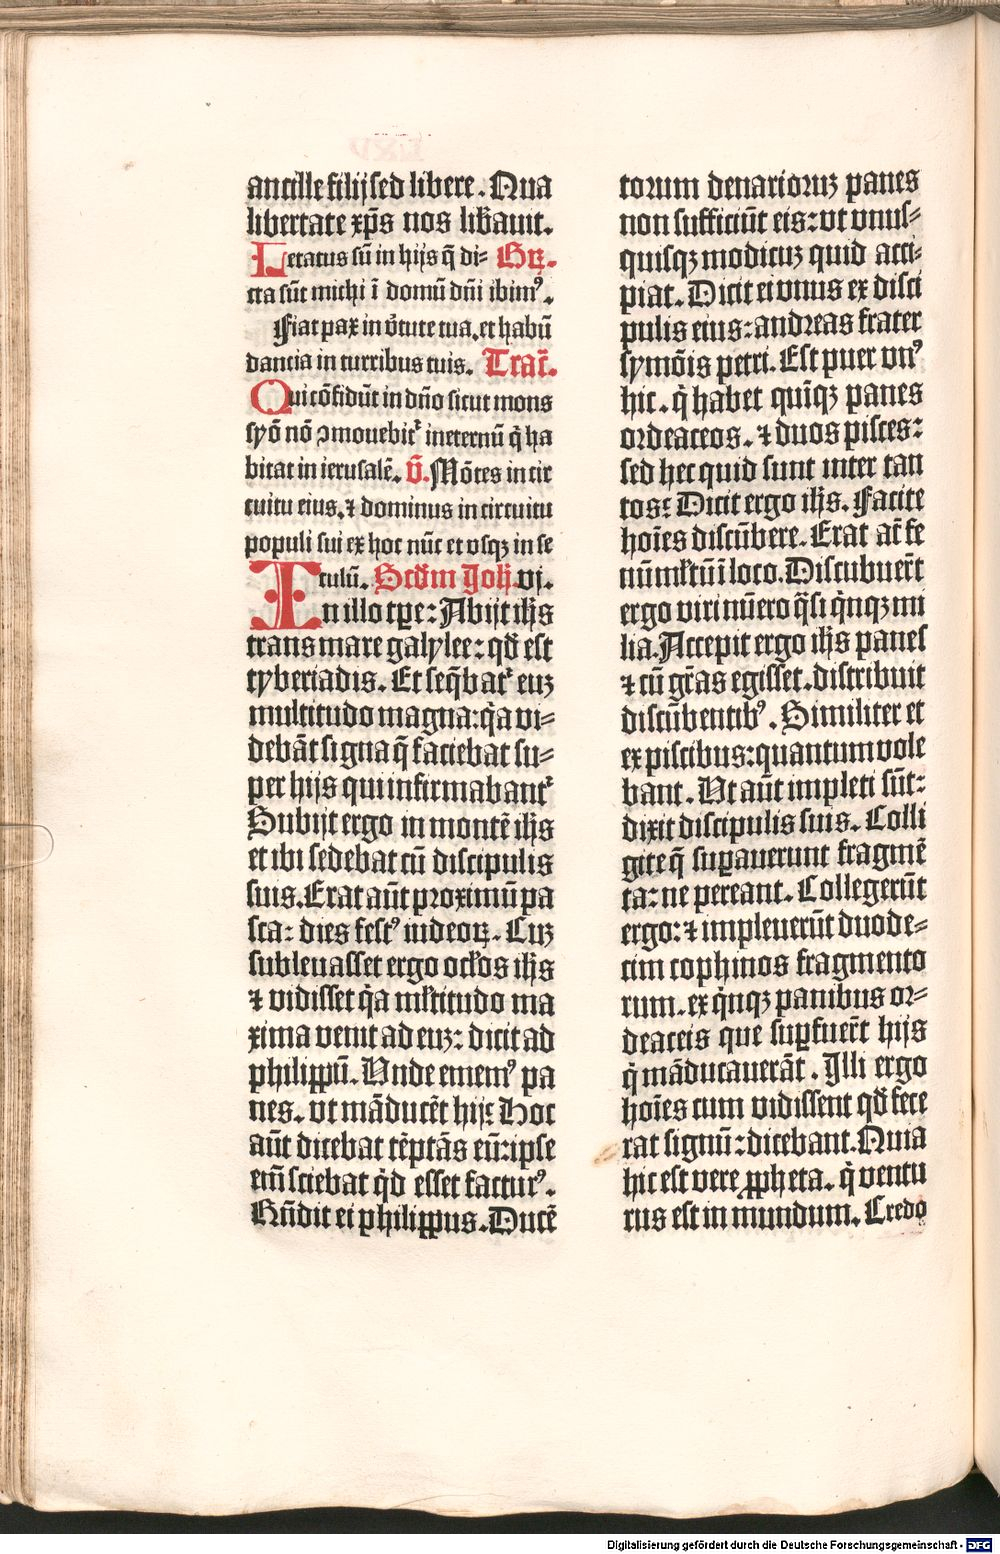 ancille filij sed libere. Qua
libertate xp̄s nos lib̄auit.
Letatus sū in hijs q̄ di= Grꝝ.
cta sūt michi ī domū dn̄i ibimꝰ.
Fiat pax in v̄tute tua. et habū
dancia in turribus tuis. Tract̄.
Qui cōfidūt in dn̄o sicut mons
syō nō ꝯmouebit᷑ ineternū q̇ ha
bitat in ierusalē. v̄. Mōtes in cir
cuitu eius. ⁊ dominus in circuitu
populi sui ex hoc nūc et vsqꝫ in se
culū. Scd̄m Joh̄. vj.
In illo tꝑe: Abijt ih̄s
trans mare galylee: qd̄ est
tyberiadis. Et seq̄bat᷑ euꝫ
multitudo magna: q̇a vi=
debāt signa q̄ faciebat su=
per hijs qui infirmabant᷑
Subijt ergo in montē ih̄s
et ibi sedebat cū discipulis
suis. Erat aūt proximū pa
sca: dies festꝰ iudeoꝝ. Cuꝫ
subleuasset ergo ocl̄os ih̄s
⁊ vidisset q̇a ml̄titudo ma
xima venit ad euꝫ: dicit ad
philippū. Vnde ememꝰ pa
nes. vt māducēt hij: Hoc
aūt dicebat tēptās eū: ipse
em̄ sciebat q̇d esset facturꝰ.
Rn̄dit ei philippus. Ducē
torum denarioruꝫ panes
non sufficiūt eis: vt vnus=
quisqꝫ modicuꝫ quid acci=
piat. Dicit ei vnus ex disci
pulis eius: andreas frater
symōis petri. Est puer vnꝰ
hic. q̇ habet quīqꝫ panes
ordeaceos. ⁊ duos pisces:
sed hec quid sunt inter tan
tos: Dicit ergo ih̄s. Facite
hoīes discūbere. Erat at̄ fe
nūml̄tūīloco. Discubuer̄t
ergo viri nūero q̄si q̇nqꝫ mi
lia. Accepit ergo ih̄s panes
⁊ cū gr̄as egisset. distribuit
discūbentibꝰ. Similiter et
ex piscibus: quantum vole
bant. Vt aūt impleti sūt:
dixit discipulis suis. Colli
gite q̄ suꝑauerunt fragmē
ta: ne pereant. Collegerūt
ergo: ⁊ impleuerūt duode=
cim cophinos fragmento
rum. ex q̇nqꝫ panibus or=
deaceis que suꝑfuer̄t hijs
q̇ māducauerāt. Illi ergo
hoīes cum vidissent qd̄ fece
rat signū: dicebant. Quia
hic est vere ꝓpheta. q̇ ventu
rus est in mundum. Credo
Digitalisierung gefördert durch die Deutsche Forschungsgemeinschaft - DFG